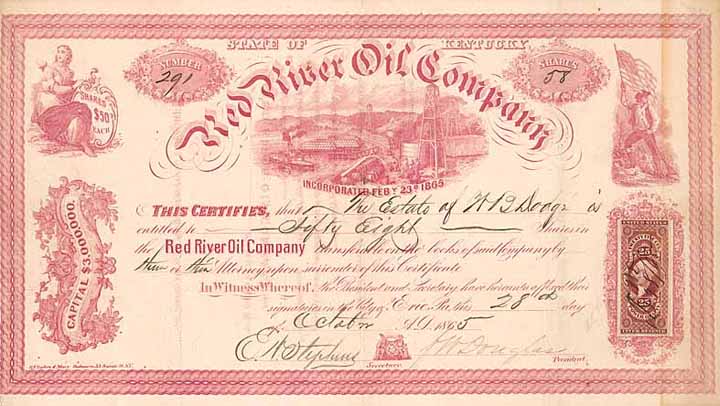 STATE OF KENTUCKY
NUMBER
291
SHARES
58
Red River Oil Company
SHARES
$50
EACH
INCORPORATED FEBY 23D 1865
CAPITAL $3,000,000.
THIS CERTIFIES, that The Estate of W B Dodge is
entitled to Fifty Eight Shares in
the Red River Oil Company transferable on the books of said Company by
them or their Attorney upon surrender of this Certificate
In Witness Whereof, the President and Secretary have hereunto affixed their
signatures in the City of Erie, Pa, this 28th day
of October A.D. 1865
Secretary.
President.
UNITED STATES
25
25
INTER. REVENUE